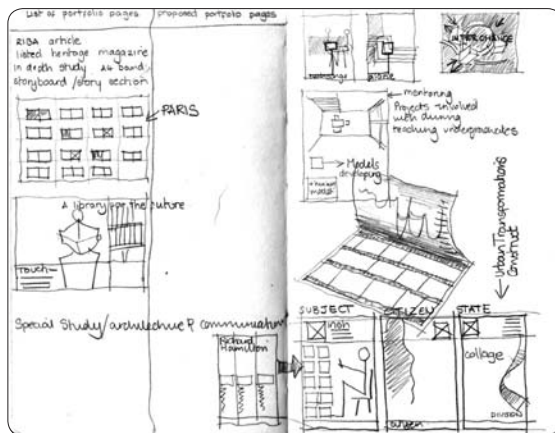 List of portfolio pages
proposed portfolio pages
RIBA article
listed heritage magazine
in depth study A4 board
storyboard/story section
PARIS
A library for the future
TOUCH
Special Study/architecture & communication
Richard
Hamilton
INTERCHANGE
mentoring
Projects involved
with during
teaching undergraduates
Models
developing
Urban Transformations
Construct
SUBJECT
CITIZEN
STATE
collage
DIVISION